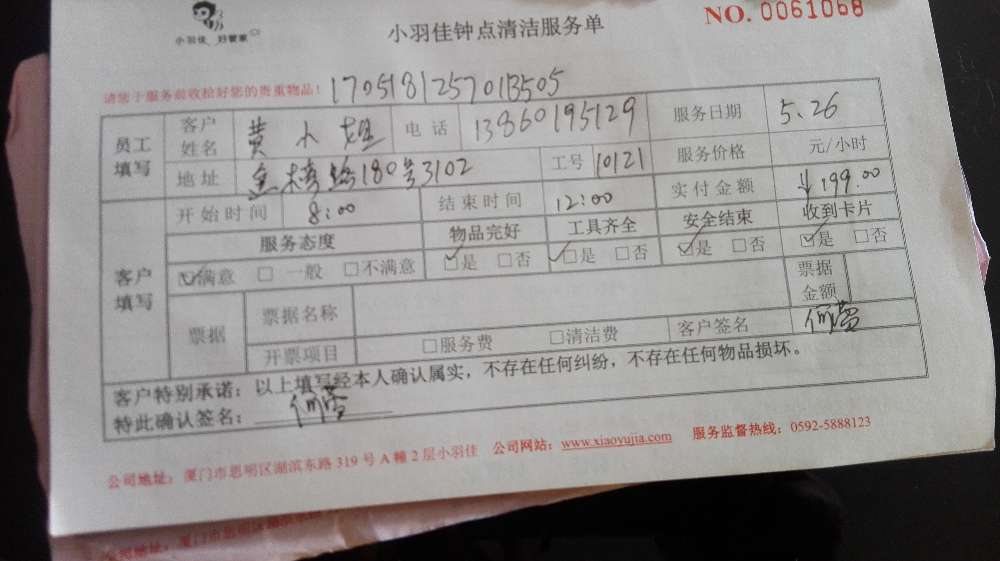 小羽佳 好管家
小羽佳钟点清洁服务单
NO. 0061068
请您于服务前收拾好您的贵重物品！ 170518125701B505
员工填写 客户姓名 黄小姐 电话 13860195129 服务日期 5.26
地址 180号3102 工号 10121 服务价格 元/小时
开始时间 8:00 结束时间 12:00 实付金额 199.00
客户填写 服务态度 物品完好 工具齐全 安全结束 收到卡片
☑满意 □一般 □不满意 ☑是 □否 ☑是 □否 ☑是 □否 ☑是 □否
票据 票据名称 票据金额
开票项目 □服务费 □清洁费 客户签名
客户特别承诺：以上填写经本人确认属实，不存在任何纠纷，不存在任何物品损坏。
特此确认签名：
公司地址：厦门市思明区湖滨东路319号A幢2层小羽佳 公司网站：www.xiaoyujia.com 服务监督热线：0592-5888123
公司地址：厦门市思明区湖滨东路